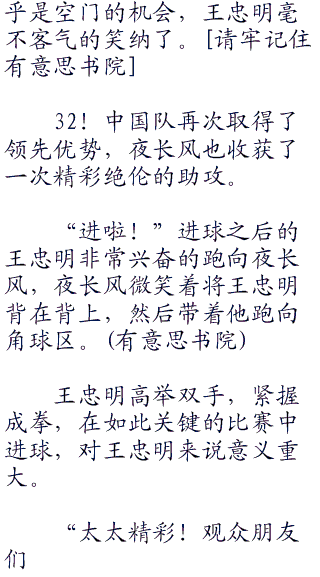 乎是空门的机会，王忠明毫
不客气的笑纳了。[请牢记住
有意思书院]
32！中国队再次取得了
领先优势，夜长风也收获了
一次精彩绝伦的助攻。
“进啦！”进球之后的
王忠明非常兴奋的跑向夜长
风，夜长风微笑着将王忠明
背在背上，然后带着他跑向
角球区。(有意思书院)
王忠明高举双手，紧握
成拳，在如此关键的比赛中
进球，对王忠明来说意义重
大。
“太太精彩！观众朋友
们